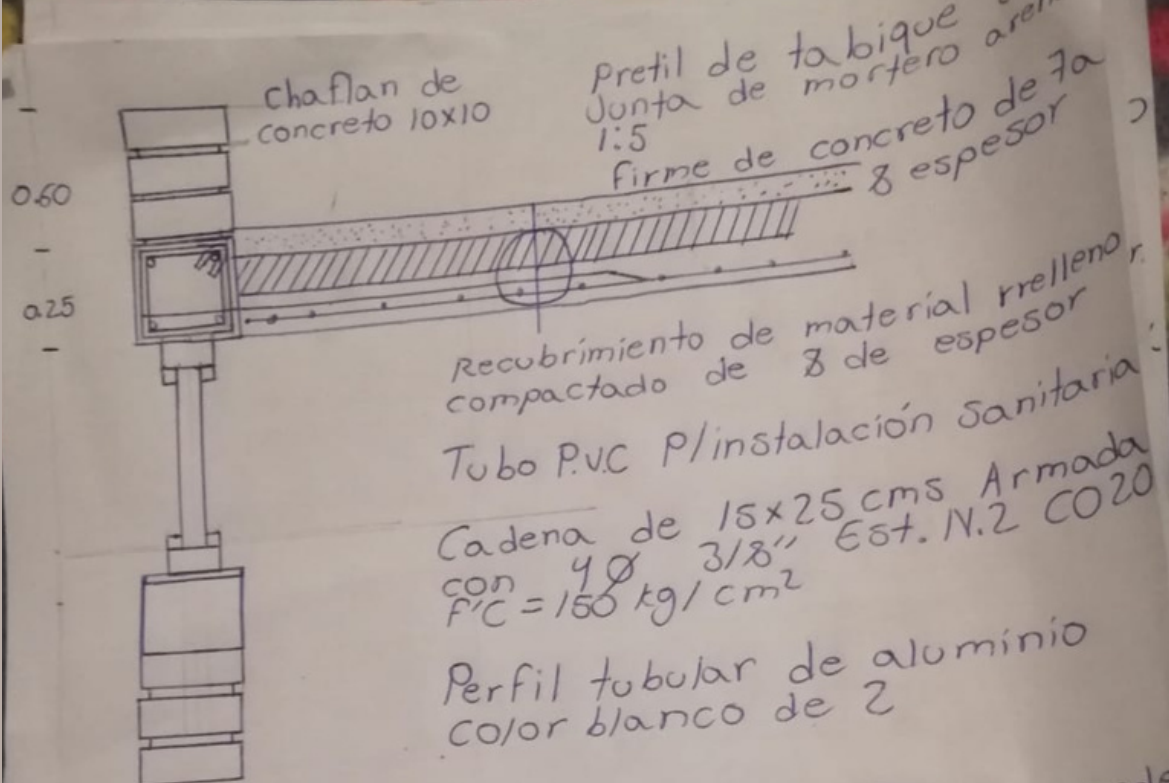 Chaflan de
concreto 10x10
Pretil de tabique
Junta de mortero
1:5
Firme de concreto de 7a
8 espesor
0.60
0.25
Recubrimiento de material rrelleno
compactado de 8 de espesor
Tubo P.V.C P/instalación Sanitaria
Cadena de 15x25 cms Armada
con 4Ø 3/8" Est. N.2 CO20
F'C = 150 kg/cm²
Perfil tubular de aluminio
color blanco de 2